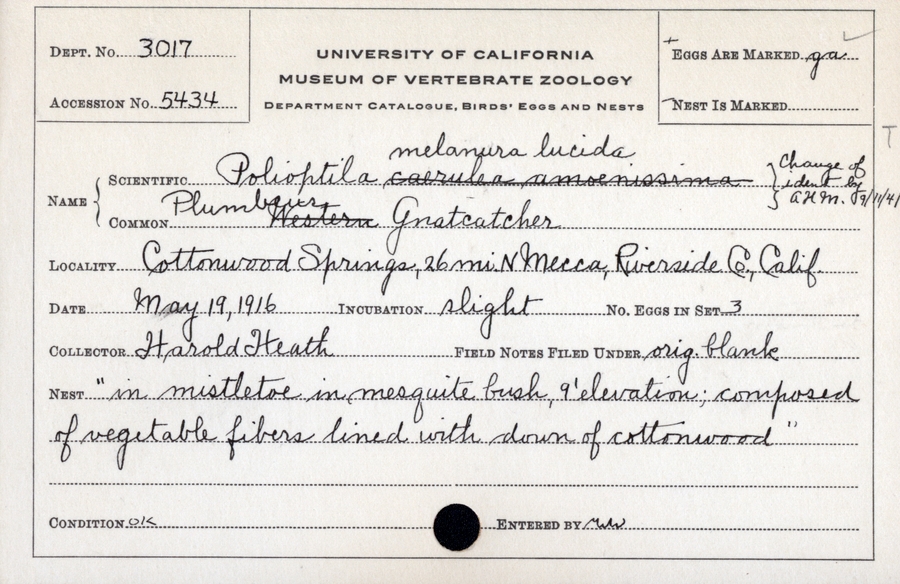 DEPT. NO. 3017
ACCESSION NO. 5434
UNIVERSITY OF CALIFORNIA
MUSEUM OF VERTEBRATE ZOOLOGY
DEPARTMENT CATALOGUE, BIRDS' EGGS AND NESTS
EGGS ARE MARKED
NEST IS MARKED
T
melanura lucida
SCIENTIFIC Polioptila caerulea amoenissima
Change of ident by AHM. 9/11/41
NAME
COMMON Plumbeus Western Gnatcatcher
LOCALITY Cottonwood Springs, 26 mi N Mecca, Riverside Co., Calif.
DATE May 19, 1916 INCUBATION slight NO. EGGS IN SET 3
COLLECTOR Harold Heath FIELD NOTES FILED UNDER orig. blank
NEST "in mistletoe in mesquite bush, 9' elevation; composed
of vegetable fibers lined with down of cottonwood"
CONDITION OK ENTERED BY